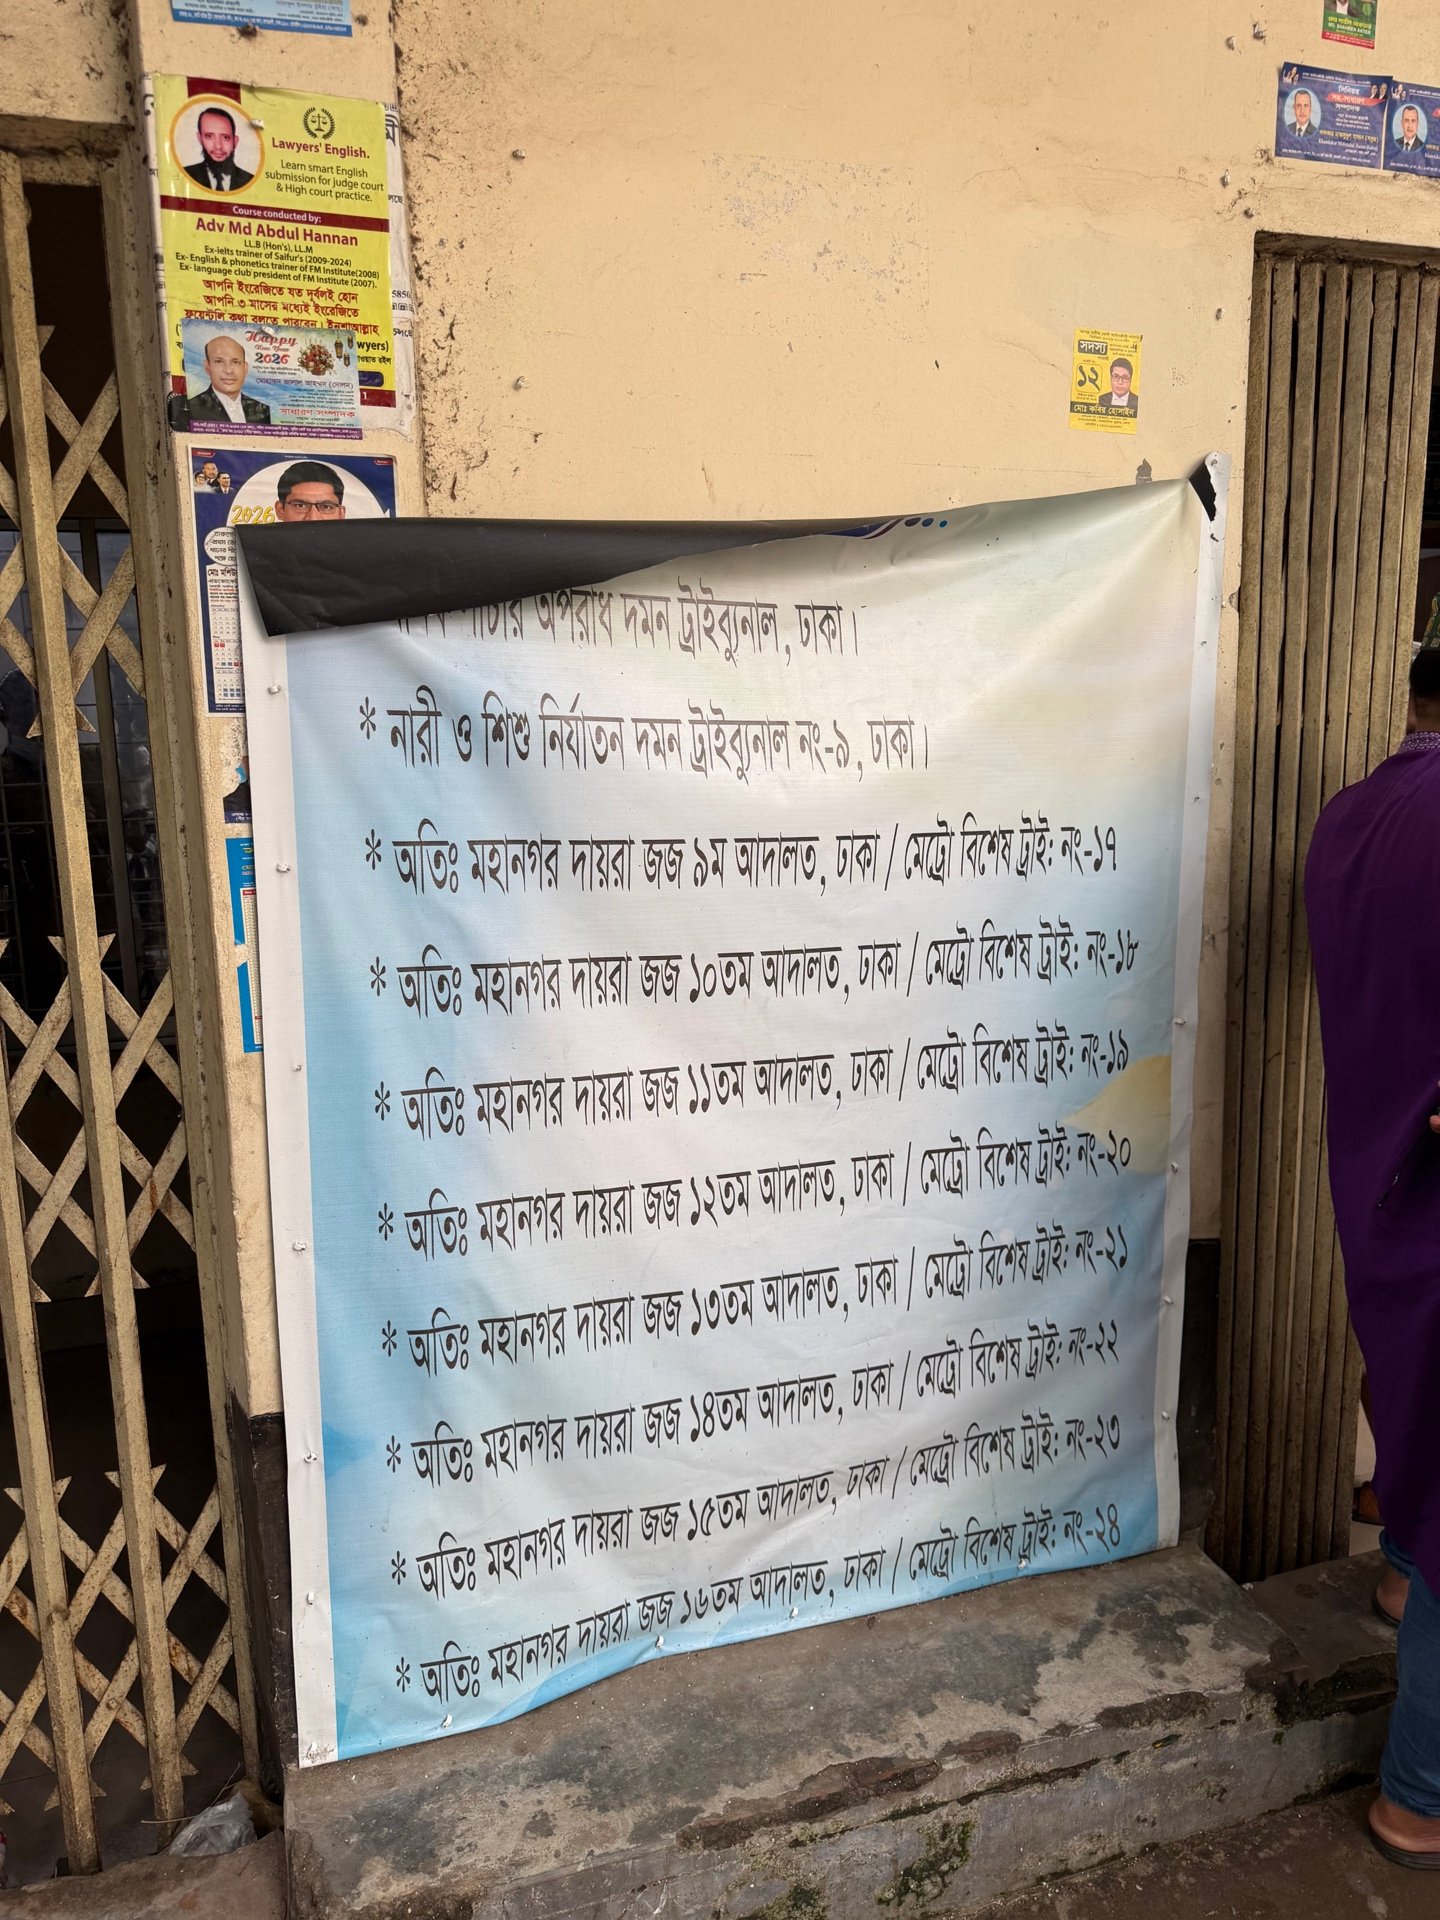 Lawyers' English.
Learn smart English
submission for judge court
& High court practice.
Course conducted by:
Adv Md Abdul Hannan
LL.B (Hon's), LL.M
Ex-ielts trainer of Saifur's (2009-2024)
Ex- English & phonetics trainer of FM Institute(2008)
Ex- language club president of FM Institute (2007).
আপনি ইংরেজিতে যত দুর্বলই হোন
আপনি ৩ মাসের মধ্যেই ইংরেজিতে
ফ্লুয়েন্টলি কথা বলতে পারবেন। ইনশাআল্লাহ
Happy
New Year
2026
মোহাম্মদ জালাল আহম্মদ (দোলন)
সাধারণ সম্পাদক
2026
সিনিয়র
সহ-সাধারণ
সম্পাদক
সদস্য
১২
মোঃ কবির হোসাইন
পাচার অপরাধ দমন ট্রাইব্যুনাল, ঢাকা।
* নারী ও শিশু নির্যাতন দমন ট্রাইব্যুনাল নং-৯, ঢাকা।
* অতিঃ মহানগর দায়রা জজ ৯ম আদালত, ঢাকা / মেট্রো বিশেষ ট্রাই: নং-১৭
* অতিঃ মহানগর দায়রা জজ ১০তম আদালত, ঢাকা / মেট্রো বিশেষ ট্রাই: নং-১৮
* অতিঃ মহানগর দায়রা জজ ১১তম আদালত, ঢাকা / মেট্রো বিশেষ ট্রাই: নং-১৯
* অতিঃ মহানগর দায়রা জজ ১২তম আদালত, ঢাকা / মেট্রো বিশেষ ট্রাই: নং-২০
* অতিঃ মহানগর দায়রা জজ ১৩তম আদালত, ঢাকা / মেট্রো বিশেষ ট্রাই: নং-২১
* অতিঃ মহানগর দায়রা জজ ১৪তম আদালত, ঢাকা / মেট্রো বিশেষ ট্রাই: নং-২২
* অতিঃ মহানগর দায়রা জজ ১৫তম আদালত, ঢাকা / মেট্রো বিশেষ ট্রাই: নং-২৩
* অতিঃ মহানগর দায়রা জজ ১৬তম আদালত, ঢাকা / মেট্রো বিশেষ ট্রাই: নং-২৪